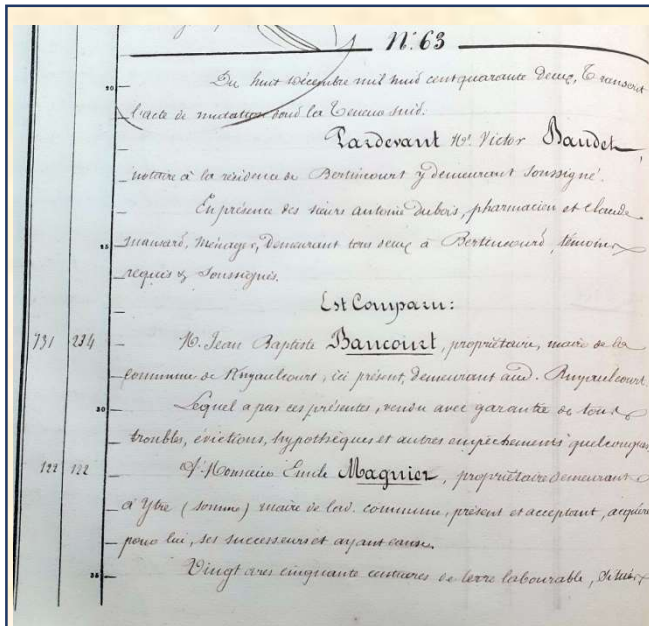 N.º 63
Du huit décembre mil huit cent quarante deux, Transcrit
l'acte de mutation dont la Teneur suit.
Pardevant Me. Victor Baudet
notaire à la résidence de Bertincourt y demeurant soussigné.
En présence des sieurs antoine dubois, pharmacien et Claude
ménager, demeurant tous deux à Bertincourt, témoins
requis & soussignés.
Est Comparu:
731 234 M. Jean Baptiste Bancourt, propriétaire, maire de la
commune de Ruyaulcourt, ici présent, demeurant aud. Ruyaulcourt.
Lequel a par ces présentes, vendu avec garantie de tous
troubles, évictions, hypothèques et autres empêchements quelconques,
122 122 A Monsieur Emile Magnier, propriétaire demeurant
à Ytre (somme) maire de lad. commune, présent et acceptant, acquéreur
pour lui, ses successeurs et ayant cause.
Vingt ares cinquante centiares de terre labourable, situés
20
25
30
35